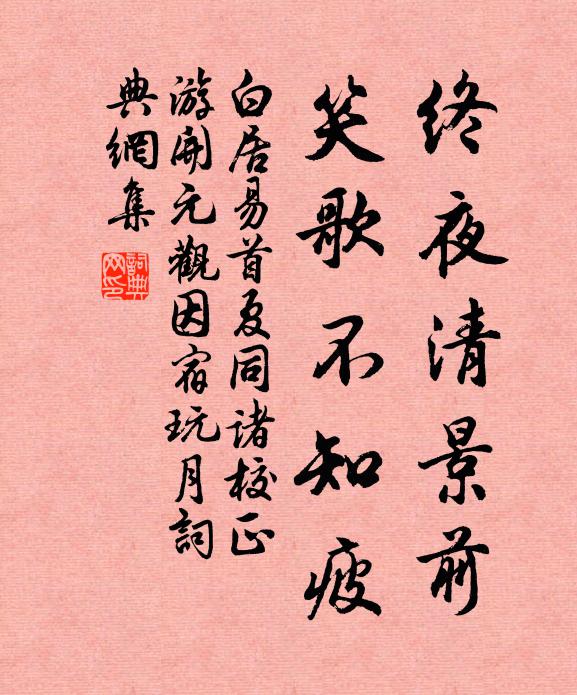 终夜清景前
笑歌不知疲
白居易首夏同诸校正
游开元觀因宿玩月詞
典網集
詞典网印